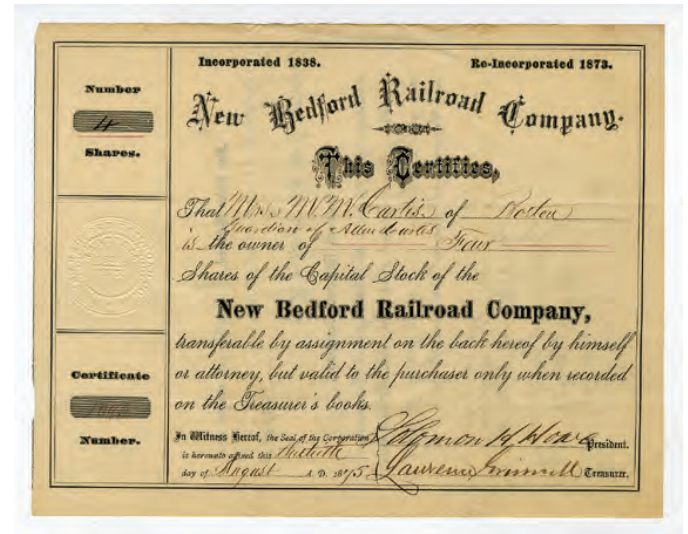 Incorporated 1838. Re-Incorporated 1873.
New Bedford Railroad Company.
This Certifies,
Number
4
Shares.
That Mrs M. M. Curtis of Boston
Guardian of Allen Curtis
is the owner of Four
Shares of the Capital Stock of the
New Bedford Railroad Company,
transferable by assignment on the back hereof by himself
or attorney, but valid to the purchaser only when recorded
on the Treasurer's books.
Certificate
Number.
In Witness Hereof, the Seal of the Corporation
is hereunto affixed this
day of August A. D. 1875
President.
Lawrence Grinnell Treasurer.